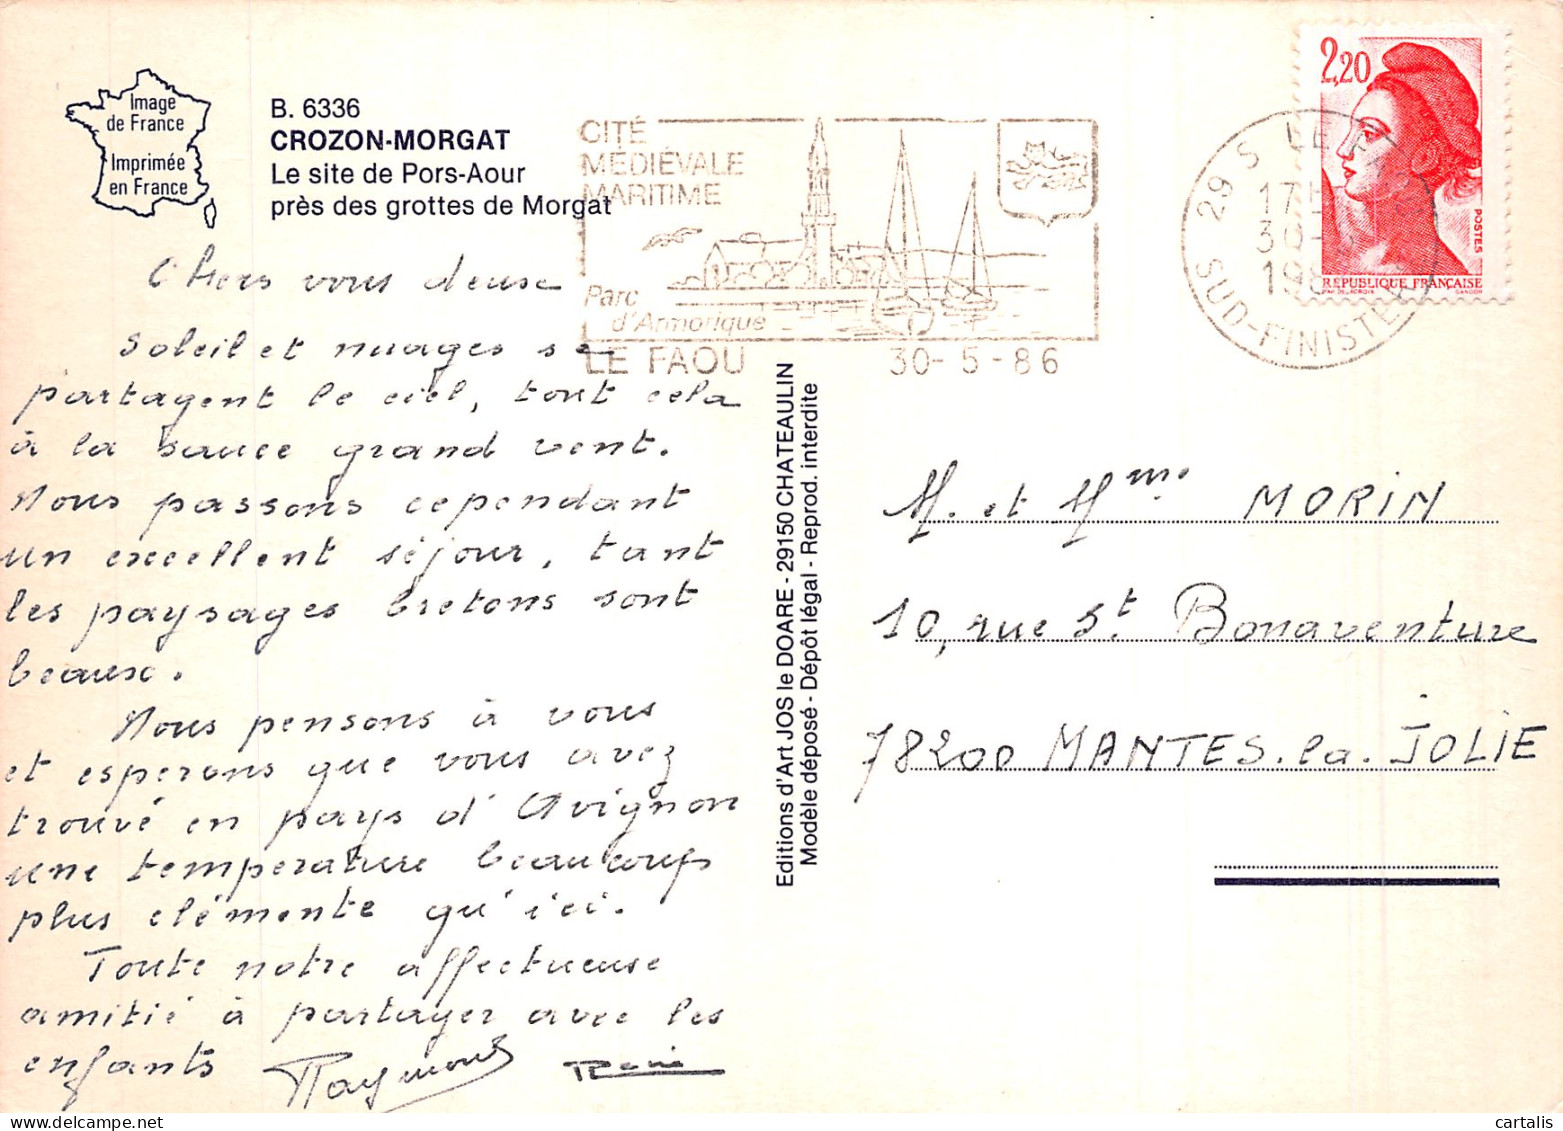 Image
de France
Imprimée
en France
B. 6336
CROZON-MORGAT
Le site de Pors-Aour
près des grottes de Morgat
CITÉ
MÉDIÉVALE
MARITIME
Parc
d'Armorique
LE FAOU
30-5-86
29 S LE
17H
30-5
198
SUD-FINISTE
2,20
POSTES
RÉPUBLIQUE FRANÇAISE
Chers vous deux
Soleil et nuages se
partagent le ciel, tout cela
à la sauce grand vent.
Nous passons cependant
un excellent séjour, tant
les paysages bretons sont
beaux.
Nous pensons à vous
et esperons que vous avez
trouvé en pays d'Avignon
une température beaucoup
plus clémente qu'ici.
Toute notre affectueuse
amitié à partager avec les
enfants Raymond René
Editions d'Art JOS le DOARE - 29150 CHATEAULIN
Modèle déposé - Dépôt légal - Reprod. interdite
M. et Mme MORIN
10, rue St Bonaventure
78200 MANTES-la-JOLIE
cartalis